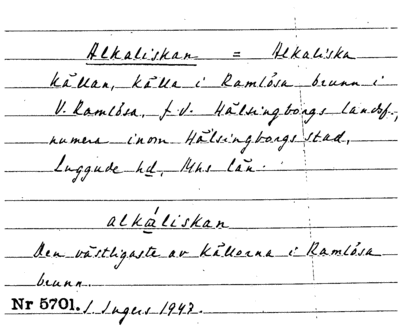 Alkaliskan = Alkaliska
källan, källa i Ramlösa brunn i
V. Ramlösa, f.d. Hälsingborgs landsf.,
numera inom Hälsingborgs stad,
Luggude hd, Mhs län.
alkáliskan
Den västligaste av källorna i Ramlösa
brunn.
Nr 5701. I. Ingers 1947.